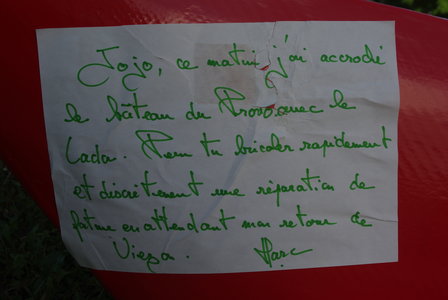 Jojo, ce matin j'ai accroché
le bâteau du avec le
Lada. Peux tu bricoler rapidement
et discrètement une réparation de
fortune en attendant mon retour de
Marc